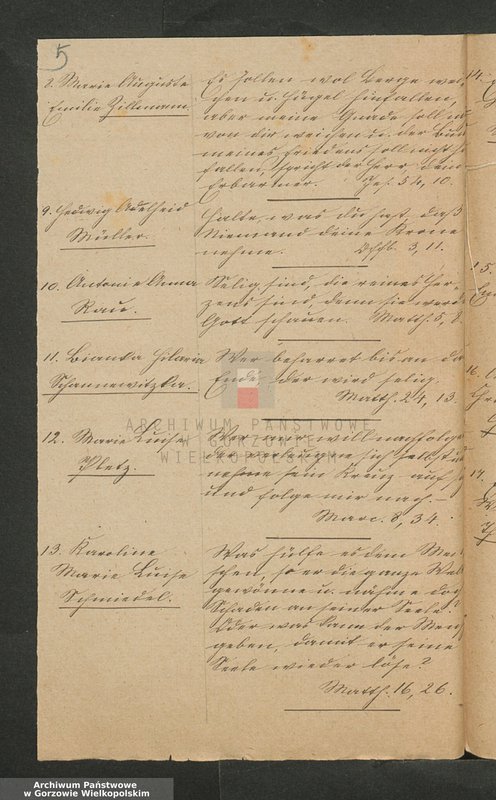 5
8. Marie Auguste
Emilie Zillmann
Es sollen wol Berge wei-
chen u. Hügel hinfallen,
aber meine Gnade soll n
von dir weichen u. der Bun
meines Friedens soll nicht h
fallen, spricht der Herr dein
Erbarmer. Jes. 54, 10.
9. Hedwig Adelheid
Müller.
Halte, was du hast, daß
Niemand deine Krone
nehme. Offb. 3, 11.
10. Antonie Anna
Rau.
Selig sind, die reines Her-
zens sind, denn sie werde
Gott schauen. Matth. 5, 8.
11. Bianka Hilaria
Schannewitzka.
Wer beharret bis an da
Ende, der wird selig.
Matth. 24, 13.
12. Marie Luise
Pletz.
Wer mir will nachfolge
der verleugne sich selbst u
nehme sein Kreuz auf s
und folge mir nach. –
Marc. 8, 34.
13. Karoline
Marie Luise
Schmiedel.
Was hülfe es dem Men
schen, so er die ganze Wel
gewönne u. nähme doch
Schaden an seiner Seele?
Oder was kann der Mens
geben, damit er seine
Seele wieder löse?
Matth. 16, 26.
14.
15.
16.
17.
ARCHIWUM PAŃSTWOWE
W GORZOWIE
WIELKOPOLSKIM
Archiwum Państwowe
w Gorzowie Wielkopolskim